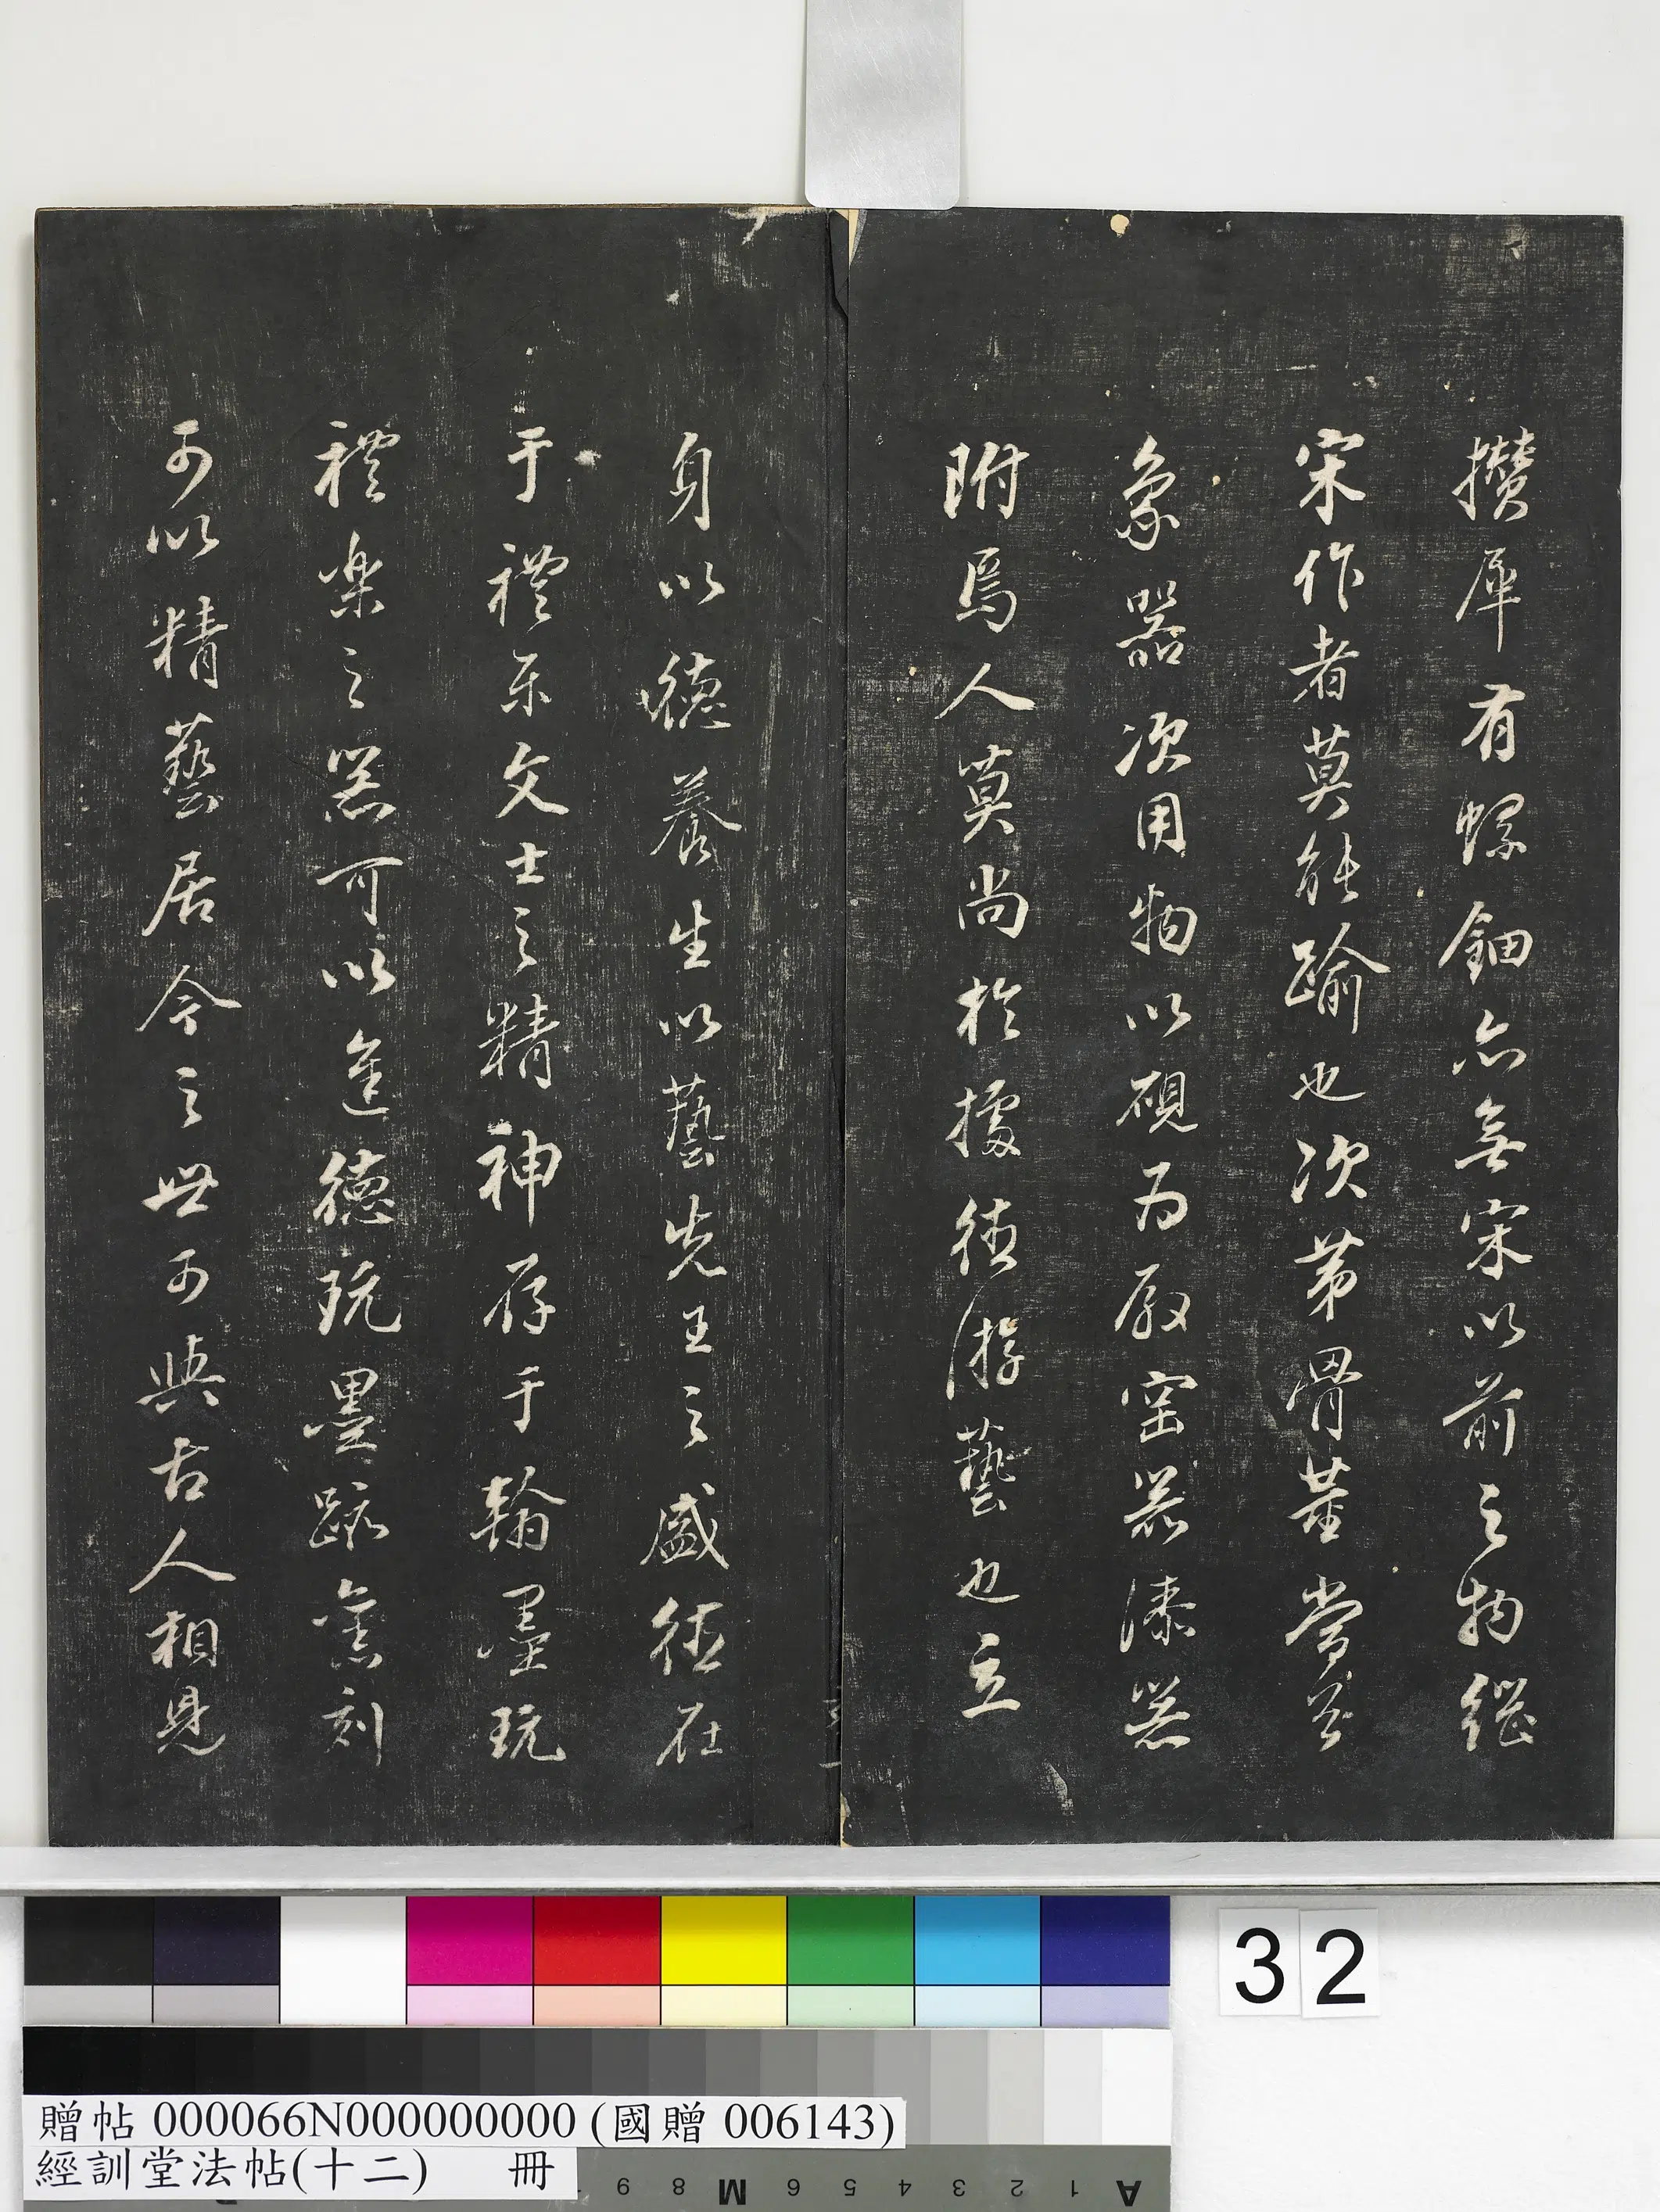 攢犀有螺鈿亦無宋以前之物繼
宋作者莫能踰也次第骨董當
象器次用物以硯為殿窑器漆器
附焉人莫尚於據德游藝也立
身以德養生以藝先王之盛德在
于禮樂文士之精神存于翰墨玩
禮樂之器可以進德玩墨跡舊刻
可以精藝居今之世可與古人相見
32
贈帖 000066N000000000 (國贈 006143)
經訓堂法帖(十二) 冊
9 8 M 6 5 4 3 2 1 A